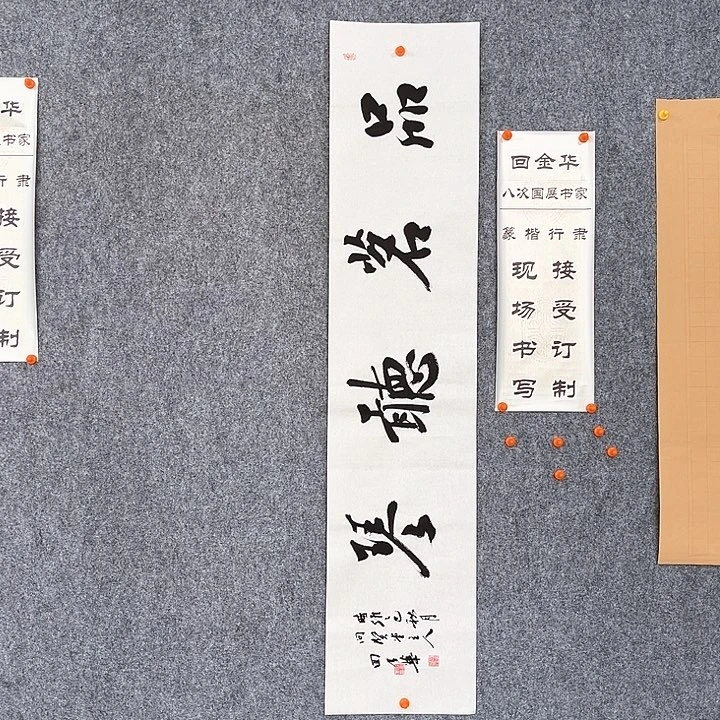 华
书家
行 隶
接受订制
品茗聽琴
回金华
八次国展书家
篆楷行隶
现场书写
接受订制